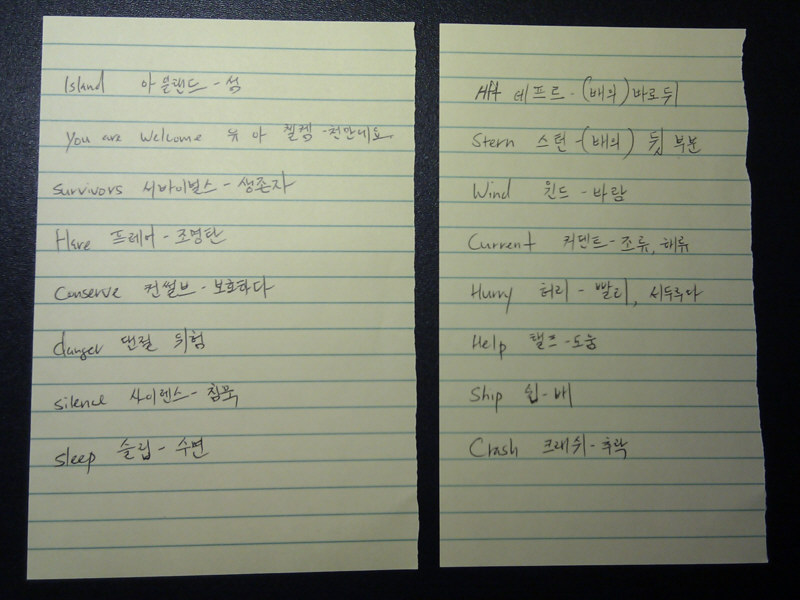 Island 아일랜드 - 섬
You are Welcome 유 아 웰켐 - 천만네요.
Survivors 서바이벌스 - 생존자
Flare 프레어 - 조명탄
Conserve 컨썰브 - 보호하다
danger 댄절 위험
silence 사이렌스 - 침묵
sleep 슬립 - 수면
Aft 테프트 - (배의) 바로뒤
Stern 스턴 - (배의) 뒷 부분
Wind 윈드 - 바람
Current 커덴트 - 조류, 해류
Hurry 허리 - 빨리, 서두루다
Help 핼프 - 도움
Ship 쉽 - 배
Crash 크래쉬 - 추락